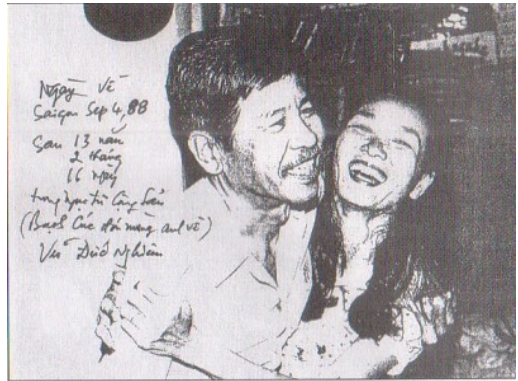 Ngày về
Saigon Sep 4, 88
Sau 13 năm
2 tháng
16 ngày
trong ngục tù Cộng Sản
(Bạch Cúc đón mừng anh về)
Vũ Đức Nghiêm